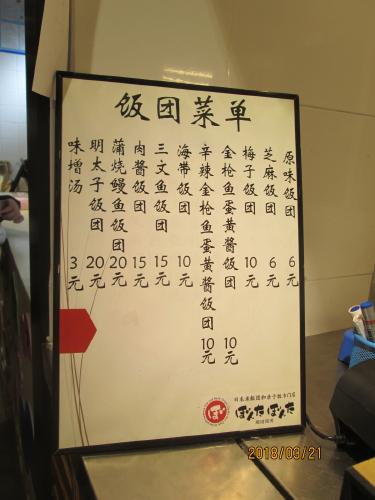 饭团菜单
原味饭团 6元
芝麻饭团 6元
梅子饭团 10元
金枪鱼蛋黄酱饭团 10元
辛辣金枪鱼蛋黄酱饭团 10元
海带饭团 10元
三文鱼饭团 15元
肉酱饭团 15元
蒲烧鳗鱼饭团 20元
明太子饭团 20元
味增汤 3元
ぽんた ぽんた
2018/03/21